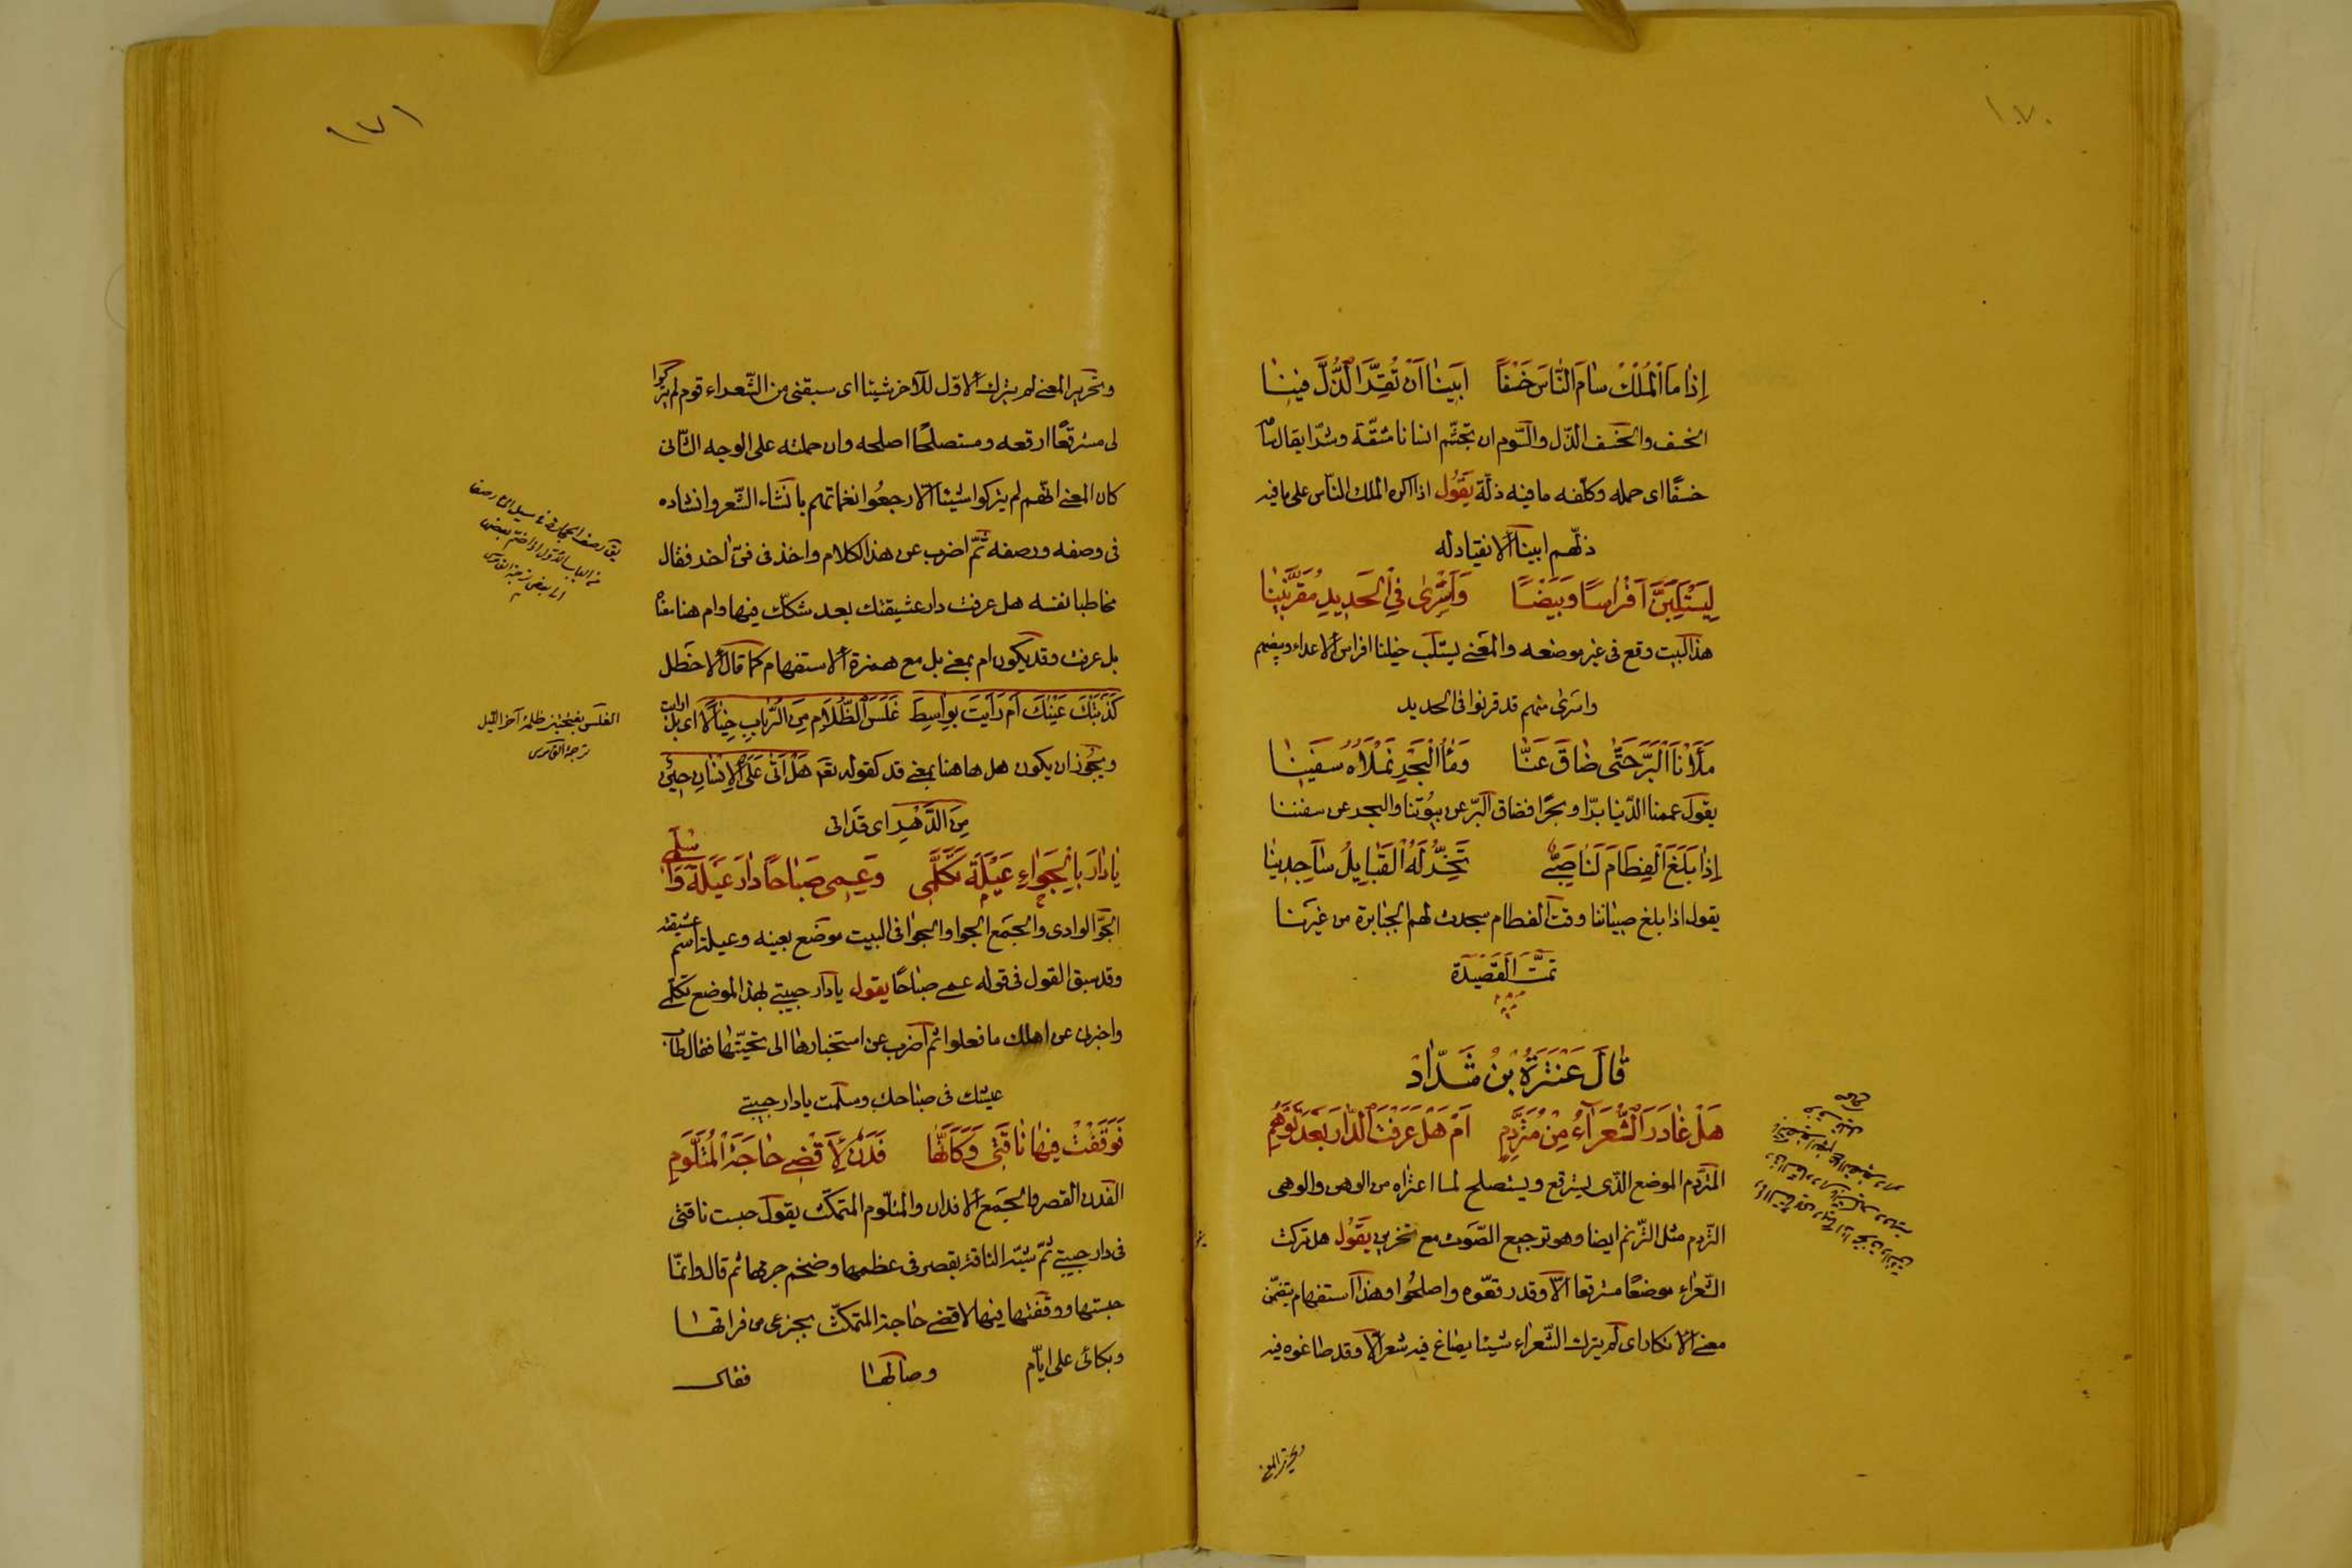 ١٧٠
إِذَا مَا الْمُلْكُ سَامَ النَّاسَ خَسْفًا ابَيْنَا اَنْ نُقِرَّ الذُّلَّ فِينَا
الخسف والخسف الذل والسوم ان تجشم انسانا مشقة وشرا يقال سامه
خسفًا اى حمله وكلفه ما فيه ذلة يَقُولُ اذا اكره الملك الناس على ما فيه
ذلهم ابينا الانقياد له
لِيَسْتَلِبَنَّ اَفْرَاسًا وَبَيْضًا وَاَسْرَى فِي الْحَدِيدِ مُقَرَّنِينَا
هذا البيت وقع فى غير موضعه والمعنى يستلب خيلنا افراس الاعداء وبيضهم
واسرى منهم قد قرنوا فى الحديد
مَلَأْنَا الْبَرَّ حَتَّى ضَاقَ عَنَّا وَمَاءُ الْبَحْرِ نَمْلَاُهُ سَفِينَا
يقول عممنا الدنيا برا وبحرا فضاق البر عن بيوتنا والبحر عن سفننا
إِذَا بَلَغَ الْفِطَامَ لَنَا صَبِىٌّ تَخِرُّ لَهُ الْقَبَايِلُ سَاجِدِينَا
يقول اذا بلغ صبياننا وقت الفطام سجدت لهم الجبابرة من غيرنا
تمَّتَ الْقَصِيدَة
قَالَ عَنْتَرَةُ بْنُ شَدَّادٍ
هَلْ غَادَرَ الشُّعَرَاءُ مِنْ مُتَرَدَّمِ اَمْ هَلْ عَرَفْتَ الدَّارَ بَعْدَ تَوَهُّمِ
المتردم الموضع الذى يسترقع ويستصلح لما اعتراه من الوهن والوهى
التردم مثل الترنم ايضا وهو ترجيع الصوت مع تحزين يَقُولُ هل تركت
الشعراء موضعًا مسترقعا الا وقد رقعوه واصلحوا وهذا استفهام يتضمن
معنى الانكار اى لم يترك الشعراء شيئا يصاغ فيه شعر الا وقد صاغوه فيه
وتحرير المعنى
١٧١
وتحرير المعنى لم يترك الاول للآخر شيئا اى سبقنى من الشعراء قوم لم يتركوا
لى مسترقعًا ارقعه ومستصلحًا اصلحه وان حملته على الوجه الثانى
كان المعنى انهم لم يتركوا شيئا الا رجعُوا نغماتهم بانشاء الشعر وانشاده
فى وصفه ورصفه ثم اضرب عن هذا الكلام واخذ فى فن آخر فقال
مخاطبا نفسه هل عرفت دار عشيقتك بعد شكك فيها وام هنا معناه
بل عرفت وقد يكون ام بمعنى بل مع همزة الاستفهام كما قال الاخطل
كَذَبَتْكَ عَيْنُكَ اَمْ رَاَيْتَ بِوَاسِطٍ غَلَسَ الظَّلَامِ مِنَ الرَّبَابِ خِيَالًا اى بل ارايت
ويجُوز ان يكون هل هاهنا بمعنى قد كقوله تعَ هَلْ اَتَى عَلَى الْاِنْسَانِ حِينٌ
مِنَ الدَّهْرِ اى قد اتى
يَا دَارَ عَبْلَةَ بِالْجَوَاءِ تَكَلَّمِى وَعِمِى صَبَاحًا دَارَ عَبْلَةَ وَاسْلَمِى
الجوّ الوادى والجمع الجوا والجوا فى البيت موضع بعينه وعبلة اسم عشيقته
وقد سبق القول فى قوله عمى صباحًا يقول يا دار حبيبتى بهذا الموضع تكلمى
واخبرينى عن اهلك ما فعلوا ثم اضرب عن استخبارها الى تحيتها فقال طاب
عيشك فى صباحك وسلمت يا دار حبيبتى
فَوَقَفْتُ فِيهَا نَاقَتِى وَكَاَنَّهَا فَدَنٌ لِاَقْضِىَ حَاجَةَ الْمُتَلَوِّمِ
الفدن القصر والجمع الافدان والمتلوم المتمكث يقول حبست ناقتى
فى دار حبيبتى ثم شبه الناقة بقصر فى عظمها وضخم جرمها ثم قال وانما
حبستها ووقفتها فيها لاقضى حاجة المتمكث بجزعى من فراقها
وبكائى على ايام وصالها فقال
الغلس بفتحتين ظلمة آخر الليل
ترجمة القاموس